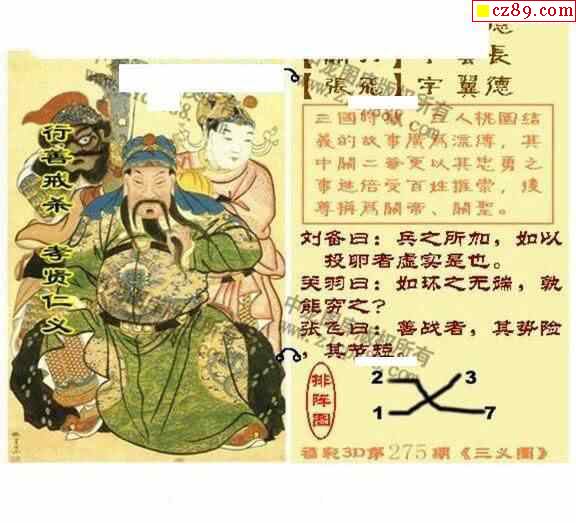 cz89.com
德
長
【張飛】字翼德
三國時義，三人桃園結
義的故事廣爲流傳，其
中關二爺更以其忠勇之
事迹倍受百姓推崇，後
尊稱爲關帝、關聖。
刘备曰：兵之所加，如以
投卵者虚实是也。
关羽曰：如环之无端，孰
能穷之？
张飞曰：善战者，其势险
，其节短。
行善戒杀 孝贤仁义
排阵图
2 3
1 7
福彩3D第275期《三义图》